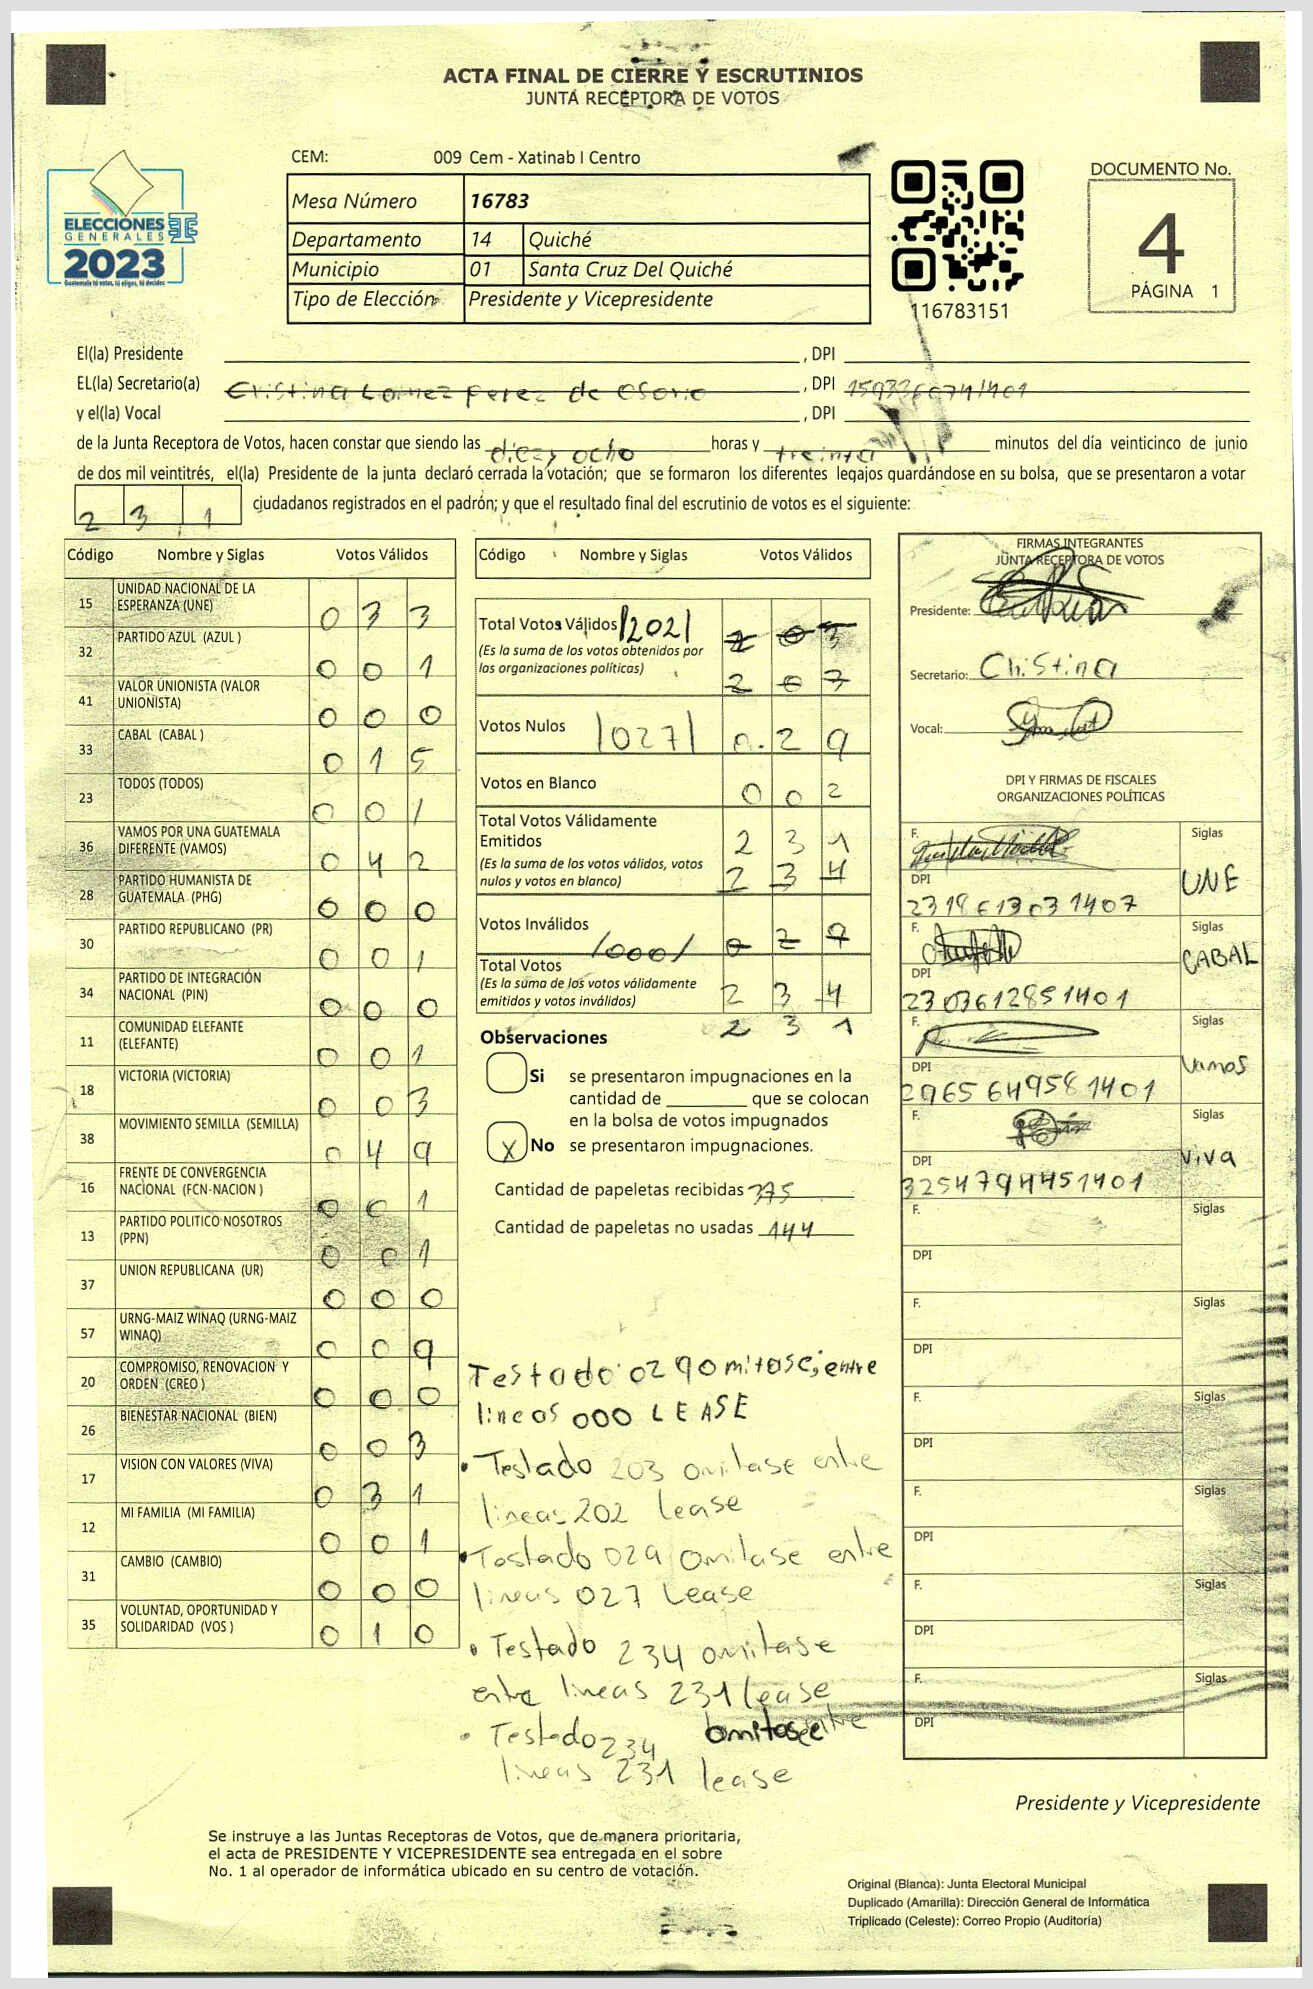 ACTA FINAL DE CIERRE Y ESCRUTINIOS
JUNTA RECEPTORA DE VOTOS
CEM: 009 Cem - Xatinab I Centro
Mesa Número 16783
Departamento 14 Quiché
Municipio 01 Santa Cruz Del Quiché
Tipo de Elección Presidente y Vicepresidente
ELECCIONES
GENERALES
2023
Guatemala tú votas, tú eliges, tú decides
116783151
DOCUMENTO No.
4
PÁGINA 1
El(la) Presidente , DPI
EL(la) Secretario(a) Cristina Lainez Perez de Osorio , DPI
y el(la) Vocal , DPI
de la Junta Receptora de Votos, hacen constar que siendo las diez y ocho horas y treinta minutos del día veinticinco de junio
de dos mil veintitrés, el(la) Presidente de la junta declaró cerrada la votación; que se formaron los diferentes legajos guardándose en su bolsa, que se presentaron a votar
2 3 1 ciudadanos registrados en el padrón; y que el resultado final del escrutinio de votos es el siguiente:
Código Nombre y Siglas Votos Válidos
15 UNIDAD NACIONAL DE LA
ESPERANZA (UNE) 0 3 3
32 PARTIDO AZUL (AZUL ) 0 0 1
41 VALOR UNIONISTA (VALOR
UNIONISTA) 0 0 0
33 CABAL (CABAL ) 0 1 5
23 TODOS (TODOS) 0 0 1
36 VAMOS POR UNA GUATEMALA
DIFERENTE (VAMOS) 0 4 2
28 PARTIDO HUMANISTA DE
GUATEMALA (PHG) 0 0 0
30 PARTIDO REPUBLICANO (PR) 0 0 1
34 PARTIDO DE INTEGRACIÓN
NACIONAL (PIN) 0 0 0
11 COMUNIDAD ELEFANTE
(ELEFANTE) 0 0 1
18 VICTORIA (VICTORIA) 0 0 3
38 MOVIMIENTO SEMILLA (SEMILLA) 0 4 9
16 FRENTE DE CONVERGENCIA
NACIONAL (FCN-NACION ) 0 0 1
13 PARTIDO POLITICO NOSOTROS
(PPN) 0 0 1
37 UNION REPUBLICANA (UR) 0 0 0
57 URNG-MAIZ WINAQ (URNG-MAIZ
WINAQ) 0 0 9
20 COMPROMISO, RENOVACION Y
ORDEN (CREO ) 0 0 0
26 BIENESTAR NACIONAL (BIEN) 0 0 3
17 VISION CON VALORES (VIVA) 0 3 1
12 MI FAMILIA (MI FAMILIA) 0 0 1
31 CAMBIO (CAMBIO) 0 0 0
35 VOLUNTAD, OPORTUNIDAD Y
SOLIDARIDAD (VOS ) 0 1 0
Código Nombre y Siglas Votos Válidos
Total Votos Válidos /202/ 2 0 3
(Es la suma de los votos obtenidos por
las organizaciones políticas) 2 0 3
Votos Nulos /027/ 0 2 9
Votos en Blanco 0 0 2
Total Votos Válidamente
Emitidos 2 3 1
(Es la suma de los votos válidos, votos
nulos y votos en blanco) 2 3 4
Votos Inválidos /000/ 0 2 9
Total Votos
(Es la suma de los votos válidamente
emitidos y votos inválidos) 2 3 4
2 3 1
Observaciones
Si se presentaron impugnaciones en la
cantidad de que se colocan
en la bolsa de votos impugnados
X No se presentaron impugnaciones.
Cantidad de papeletas recibidas 375
Cantidad de papeletas no usadas 144
Testado 029 omitase, entre
lineas 000 LEASE
• Testado 203 omitase entre
lineas 202 lease
• Testado 029 omitase entre
lineas 027 Lease
• Testado 234 omitase
entre lineas 231 lease
• Testado 234 omitase entre
lineas 231 lease
FIRMAS INTEGRANTES
JUNTA RECEPTORA DE VOTOS
Presidente:
Secretario: Cristina
Vocal:
DPI Y FIRMAS DE FISCALES
ORGANIZACIONES POLÍTICAS
F. Siglas
UNE
DPI
F. Siglas
CABAL
DPI
2303612851401
F. Siglas
Vamos
DPI
2965649581401
F. Siglas
viva
DPI
3254794451401
F. Siglas
DPI
F. Siglas
DPI
F. Siglas
DPI
F. Siglas
DPI
F. Siglas
DPI
F. Siglas
DPI
Presidente y Vicepresidente
Se instruye a las Juntas Receptoras de Votos, que de manera prioritaria,
el acta de PRESIDENTE Y VICEPRESIDENTE sea entregada en el sobre
No. 1 al operador de informática ubicado en su centro de votación.
Original (Blanca): Junta Electoral Municipal
Duplicado (Amarilla): Dirección General de Informática
Triplicado (Celeste): Correo Propio (Auditoría)